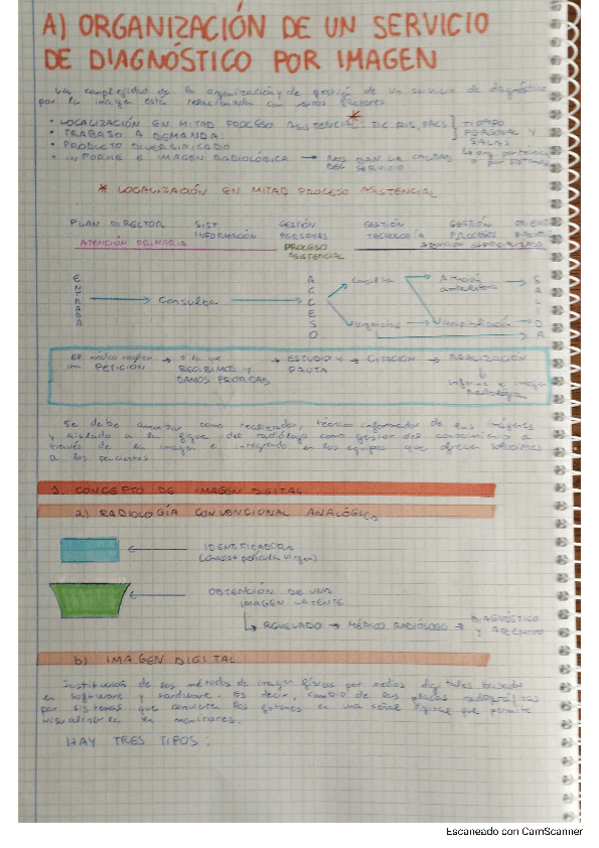 A) ORGANIZACIÓN DE UN SERVICIO
DE DIAGNÓSTICO POR IMAGEN
La complejidad de la organización y de gestión de un servicio de diagnóstico
por la imagen está relacionada con varios factores
• LOCALIZACIÓN EN MITAD PROCESO ASISTENCIAL: TIC, RIS, PACS
• TRABAJO A DEMANDA
• PRODUCTO DIVERSIFICADO
• INFORME E IMAGEN RADIOLÓGICA → NOS DAN LA CALIDAD
DEL SERVICIO
TIEMPO
PERSONAL Y
SALAS
* LOCALIZACIÓN EN MITAD PROCESO ASISTENCIAL
PLAN DIRECTOR SIST. INFORMACIÓN GESTIÓN PERSONAS GESTIÓN TECNOLOGÍA GESTIÓN PROCESOS
ATENCIÓN PRIMARIA PROCESO ASISTENCIAL ATENCIÓN ESPECIALIZADA
ENTRADA → Consulta → ACCESO
Consulta → Atención ambulatoria
Urgencias → Hospitalización
SALIDA
El médico
una PETICIÓN → a la que RECIBIMOS Y DAMOS PRIORIDAD → ESTUDIO Y PAUTA → CITACIÓN → REALIZACIÓN
informe e imagen
radiológica
Se debe avanzar como realizador, técnico informador de las imágenes
y aislado a la figura del radiólogo como gestor del conocimiento a
través de la imagen e integrado en los equipos que ofrecen soluciones
a los pacientes
1. CONCEPTO DE IMAGEN DIGITAL
a) RADIOLOGÍA CONVENCIONAL ANALÓGICA
IDENTIFICADORA
(chasis + película virgen)
OBTENCIÓN DE UNA
IMAGEN LATENTE
REVELADO → MÉDICO RADIÓLOGO → DIAGNÓSTICO
Y ARCHIVO
b) IMAGEN DIGITAL
Sustitución de los métodos de imagen físicos por medios digitales basados
en software y hardware. Es decir, cambio de las placas radiográficas
por sistemas que convierten los fotones en una señal digital que permite
visualizarla en monitores.
HAY TRES TIPOS:
Escaneado con CamScanner